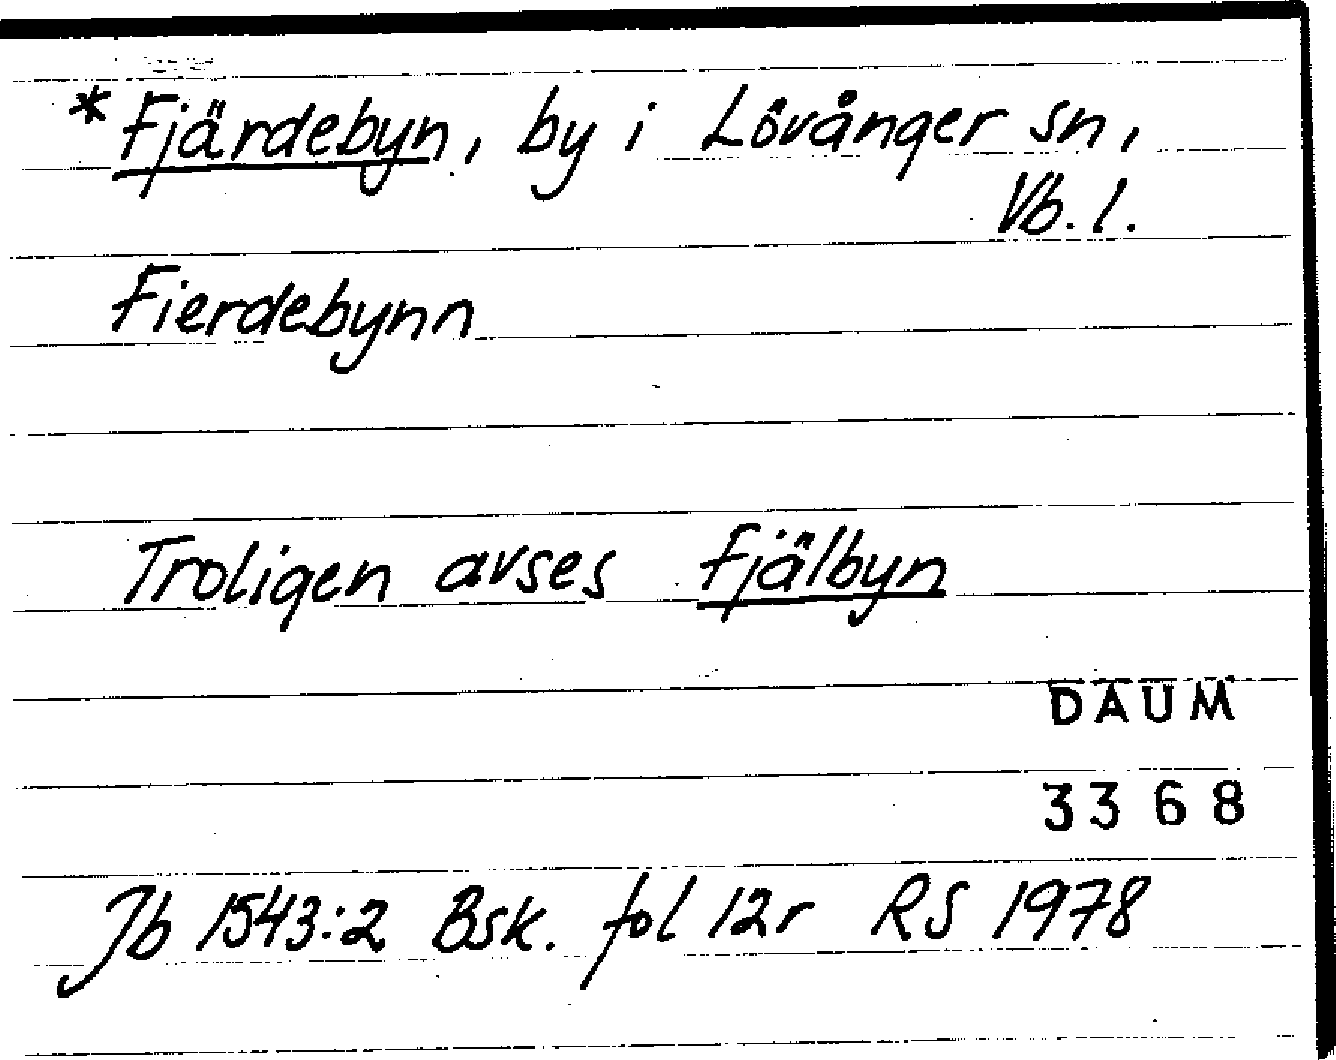 * Fjärdebyn, by i Lövånger sn,
Vb. l.
Fierdebynn
Troligen avses Fjälbyn
DAUM
3368
Jb 1543:2 Bsk. fol 12r RS 1978